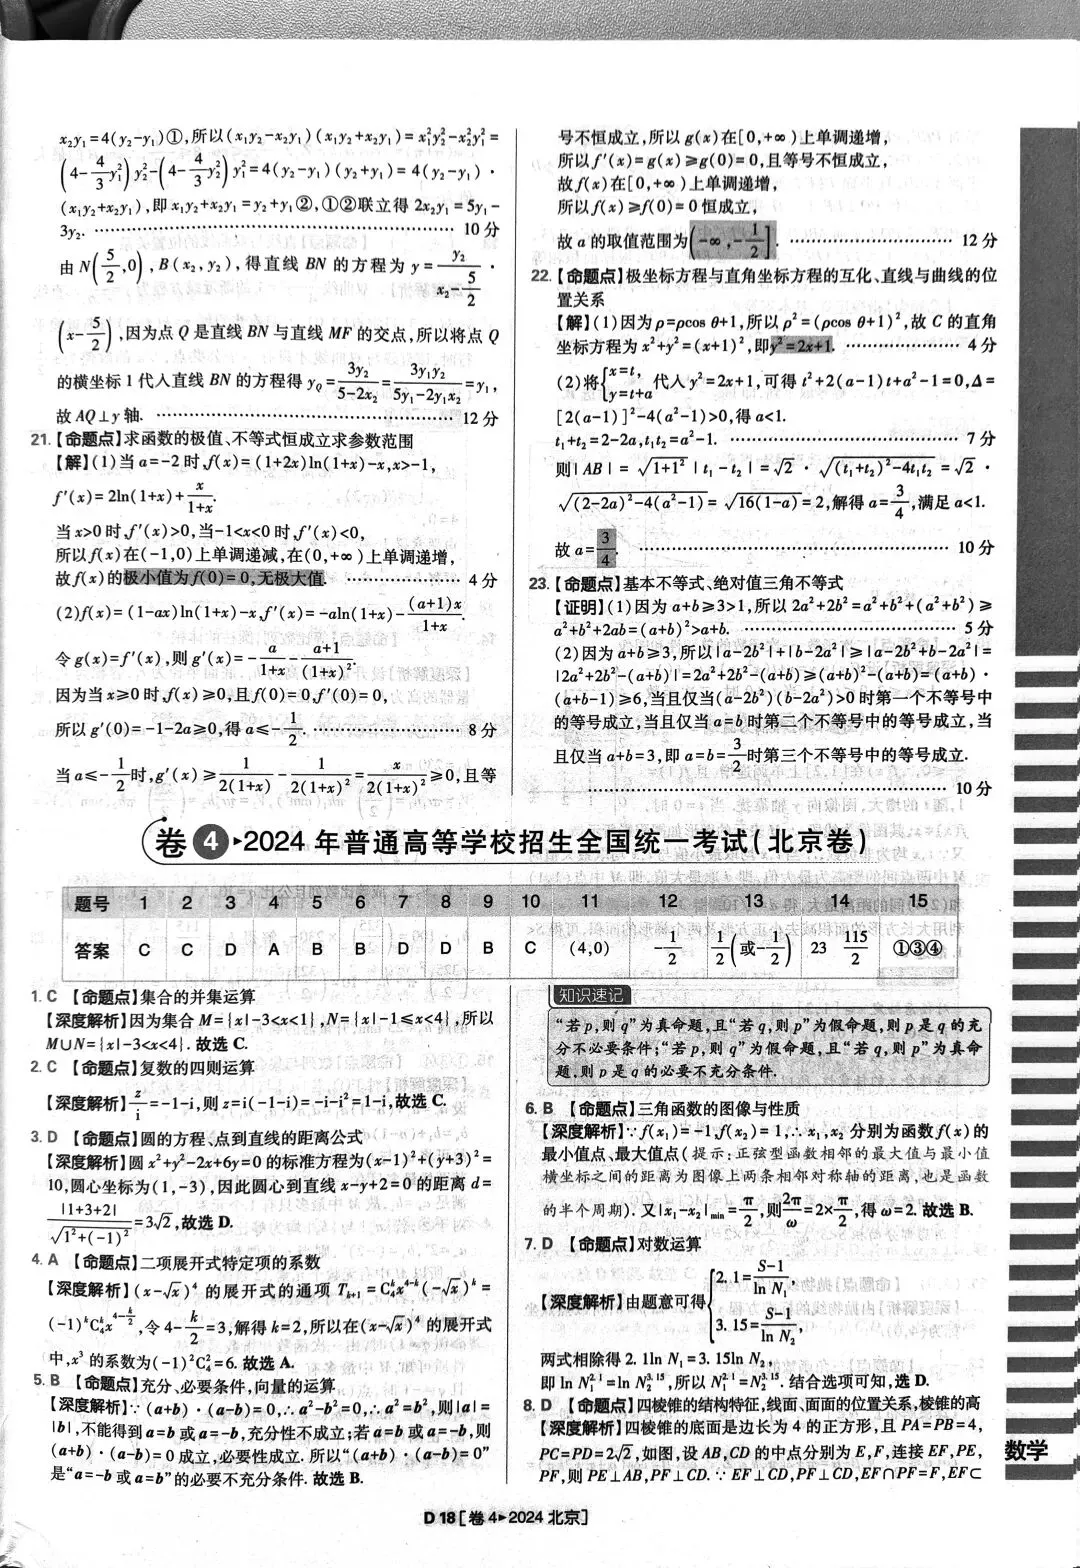 x₂y₁=4(y₂-y₁)①,所以(x₁y₂-x₂y₁)(x₁y₂+x₂y₁)=x₁²y₂²-x₂²y₁²=
(4-4/3y₁²)y₂²-(4-4/3y₂²)y₁²=4(y₂-y₁)(y₂+y₁)=4(y₂-y₁)·
(x₁y₂+x₂y₁),即x₁y₂+x₂y₁=y₂+y₁②,①②联立得2x₂y₁=5y₁-
3y₂. ………… 10分
由N(5/2,0),B(x₂,y₂),得直线BN的方程为y=y₂/(x₂-5/2)·
(x-5/2),因为点Q是直线BN与直线MF的交点,所以将点Q
的横坐标1代入直线BN的方程得y_Q=3y₂/(5-2x₂)=3y₁y₂/(5y₁-2y₁x₂)=y₁,
故AQ⊥y轴. ………… 12分
21.【命题点】求函数的极值、不等式恒成立求参数范围
【解】(1)当a=-2时,f(x)=(1+2x)ln(1+x)-x,x>-1,
f′(x)=2ln(1+x)+x/(1+x).
当x>0时,f′(x)>0,当-1<x<0时,f′(x)<0,
所以f(x)在(-1,0)上单调递减,在(0,+∞)上单调递增,
故f(x)的极小值为f(0)=0,无极大值. ………… 4分
(2)f(x)=(1-ax)ln(1+x)-x,f′(x)=-aln(1+x)-(a+1)x/(1+x).
令g(x)=f′(x),则g′(x)=-a/(1+x)-(a+1)/(1+x)².
因为当x≥0时,f(x)≥0,且f(0)=0,f′(0)=0,
所以g′(0)=-1-2a≥0,得a≤-1/2. ………… 8分
当a≤-1/2时,g′(x)≥1/2(1+x)-1/2(1+x)²=x/2(1+x)²≥0,且等
号不恒成立,所以g(x)在[0,+∞)上单调递增,
所以f′(x)=g(x)≥g(0)=0,且等号不恒成立,
故f(x)在[0,+∞)上单调递增,
所以f(x)≥f(0)=0恒成立,
故a的取值范围为(-∞,-1/2]. ………… 12分
22.【命题点】极坐标方程与直角坐标方程的互化、直线与曲线的位
置关系
【解】(1)因为ρ=ρcos θ+1,所以ρ²=(ρcos θ+1)²,故C的直角
坐标方程为x²+y²=(x+1)²,即y²=2x+1. ………… 4分
(2)将{x=t, y=t+a代入y²=2x+1,可得t²+2(a-1)t+a²-1=0,Δ=
[2(a-1)]²-4(a²-1)>0,得a<1.
t₁+t₂=2-2a,t₁t₂=a²-1. ………… 7分
则|AB|=√(1+1²)|t₁-t₂|=√2·√((t₁+t₂)²-4t₁t₂)=√2·
√((2-2a)²-4(a²-1))=√(16(1-a))=2,解得a=3/4,满足a<1.
故a=3/4. ………… 10分
23.【命题点】基本不等式、绝对值三角不等式
【证明】(1)因为a+b≥3>1,所以2a²+2b²=a²+b²+(a²+b²)≥
a²+b²+2ab=(a+b)²>a+b. ………… 5分
(2)因为a+b≥3,所以|a-2b²|+|b-2a²|≥|a-2b²+b-2a²|=
|2a²+2b²-(a+b)|=2a²+2b²-(a+b)≥(a+b)²-(a+b)=(a+b)·
(a+b-1)≥6,当且仅当(a-2b²)(b-2a²)>0时第一个不等号中
的等号成立,当且仅当a=b时第二个不等号中的等号成立,当
且仅当a+b=3,即a=b=3/2时第三个不等号中的等号成立.
………… 10分
卷4▶2024年普通高等学校招生全国统一考试(北京卷)
题号 1 2 3 4 5 6 7 8 9 10 11 12 13 14 15
答案 C C D A B B D D B C (4,0) -1/2 1/2(或-1/2) 23 115/2 ①③④
1. C 【命题点】集合的并集运算
【深度解析】因为集合M={x|-3<x<1},N={x|-1≤x<4},所以
M∪N={x|-3<x<4}. 故选C.
2. C 【命题点】复数的四则运算
【深度解析】z/i=-1-i,则z=i(-1-i)=-i-i²=1-i,故选C.
3. D 【命题点】圆的方程、点到直线的距离公式
【深度解析】圆x²+y²-2x+6y=0的标准方程为(x-1)²+(y+3)²=
10,圆心坐标为(1,-3),因此圆心到直线x-y+2=0的距离d=
|1+3+2|/√(1²+(-1)²)=3√2,故选D.
4. A 【命题点】二项展开式特定项的系数
【深度解析】(x-√x)⁴的展开式的通项T_{k+1}=C₄ᵏx^{4-k}(-√x)ᵏ=
(-1)ᵏC₄ᵏx^{4-k/2},令4-k/2=3,解得k=2,所以在(x-√x)⁴的展开式
中,x³的系数为(-1)²C₄²=6. 故选A.
5. B 【命题点】充分、必要条件,向量的运算
【深度解析】∵(a+b)·(a-b)=0,∴a²-b²=0,∴a²=b²,则|a|=
|b|,不能得到a=b或a=-b,充分性不成立;若a=b或a=-b,则
(a+b)·(a-b)=0成立,必要性成立. 所以“(a+b)·(a-b)=0”
是“a=-b或a=b”的必要不充分条件. 故选B.
知识速记
“若p,则q”为真命题,且“若q,则p”为假命题,则p是q的充
分不必要条件;“若p,则q”为假命题,且“若q,则p”为真命
题,则p是q的必要不充分条件.
6. B 【命题点】三角函数的图像与性质
【深度解析】∵f(x₁)=-1,f(x₂)=1,∴x₁,x₂分别为函数f(x)的
最小值点、最大值点(提示:正弦型函数相邻的最大值与最小值
横坐标之间的距离为图像上两条相邻对称轴的距离,也是函数
的半个周期). 又|x₁-x₂|min=π/2,则2π/ω=2×π/2,得ω=2. 故选B.
7. D 【命题点】对数运算
【深度解析】由题意可得{2.1=(S-1)/ln N₁, 3.15=(S-1)/ln N₂,
两式相除得2.1ln N₁=3.15ln N₂,
即ln N₁^{2.1}=ln N₂^{3.15},所以N₁^{2.1}=N₂^{3.15}. 结合选项可知,选D.
8. D 【命题点】四棱锥的结构特征,线面、面面的位置关系,棱锥的高
【深度解析】四棱锥的底面是边长为4的正方形,且PA=PB=4,
PC=PD=2√2,如图,设AB,CD的中点分别为E,F,连接EF,PE,
PF,则PE⊥AB,PF⊥CD.∵EF⊥CD,PF⊥CD,EF∩PF=F,EF⊂
数学
D 18[卷4▶2024北京]